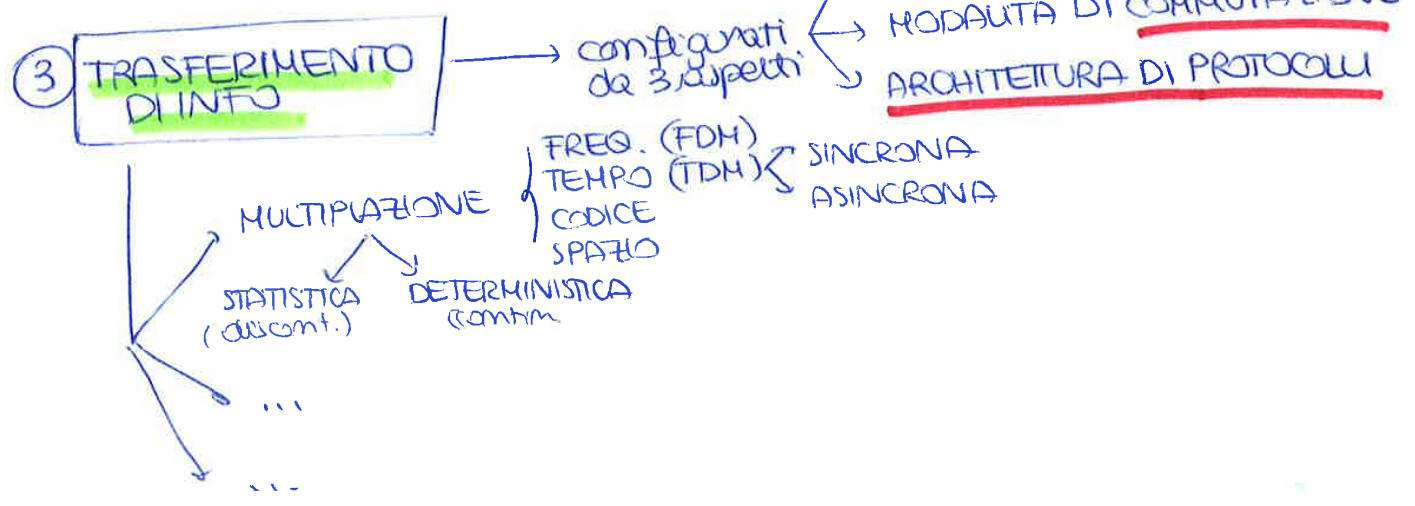 3 TRASFERIMENTO
DI INFO
configurati
da 3 aspetti
MODALITA DI COMMUTAZIONE
ARCHITETTURA DI PROTOCOLLI
MULTIPLAZIONE
FREQ. (FDM)
TEMPO (TDM)
SINCRONA
ASINCRONA
CODICE
SPAZIO
STATISTICA
(discont.)
DETERMINISTICA
(contin
...
...